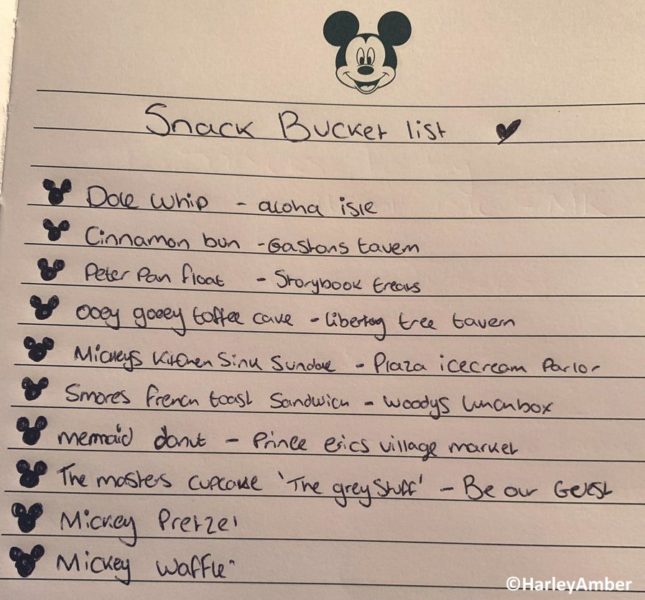 Snack Bucket list
Dole Whip - aloha isle
Cinnamon bun - Gastons tavern
Peter Pan float - Storybook treats
Ooey gooey toffee cake - liberty tree tavern
Mickeys Kitchen Sink Sundae - Plaza icecream Parlor
Smores french toast Sandwich - Woodys lunchbox
mermaid donut - Prince erics village market
The masters cupcake 'The grey Stuff' - Be our Guest
Mickey Pretzel
Mickey Waffle
©HarleyAmber